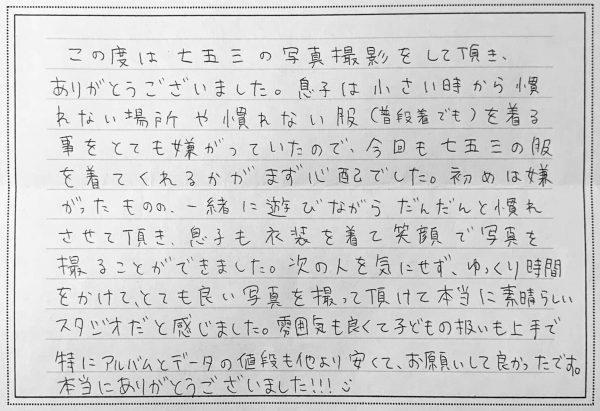 この度は七五三の写真撮影をして頂き、
ありがとうございました。息子は小さい時から慣
れない場所や慣れない服(普段着でも)を着る
事をとても嫌がっていたので、今回も七五三の服
を着てくれるかがまず心配でした。初めは嫌
がったものの、一緒に遊びながらだんだんと慣れ
させて頂き、息子も衣装を着て笑顔で写真を
撮ることができました。次の人を気にせず、ゆっくり時間
をかけて、とても良い写真を撮って頂けて本当に素晴らしい
スタジオだと感じました。雰囲気も良くて子どもの扱いも上手で
特にアルバムとデータの値段も他より安くて、お願いして良かったです。
本当にありがとうございました!!!